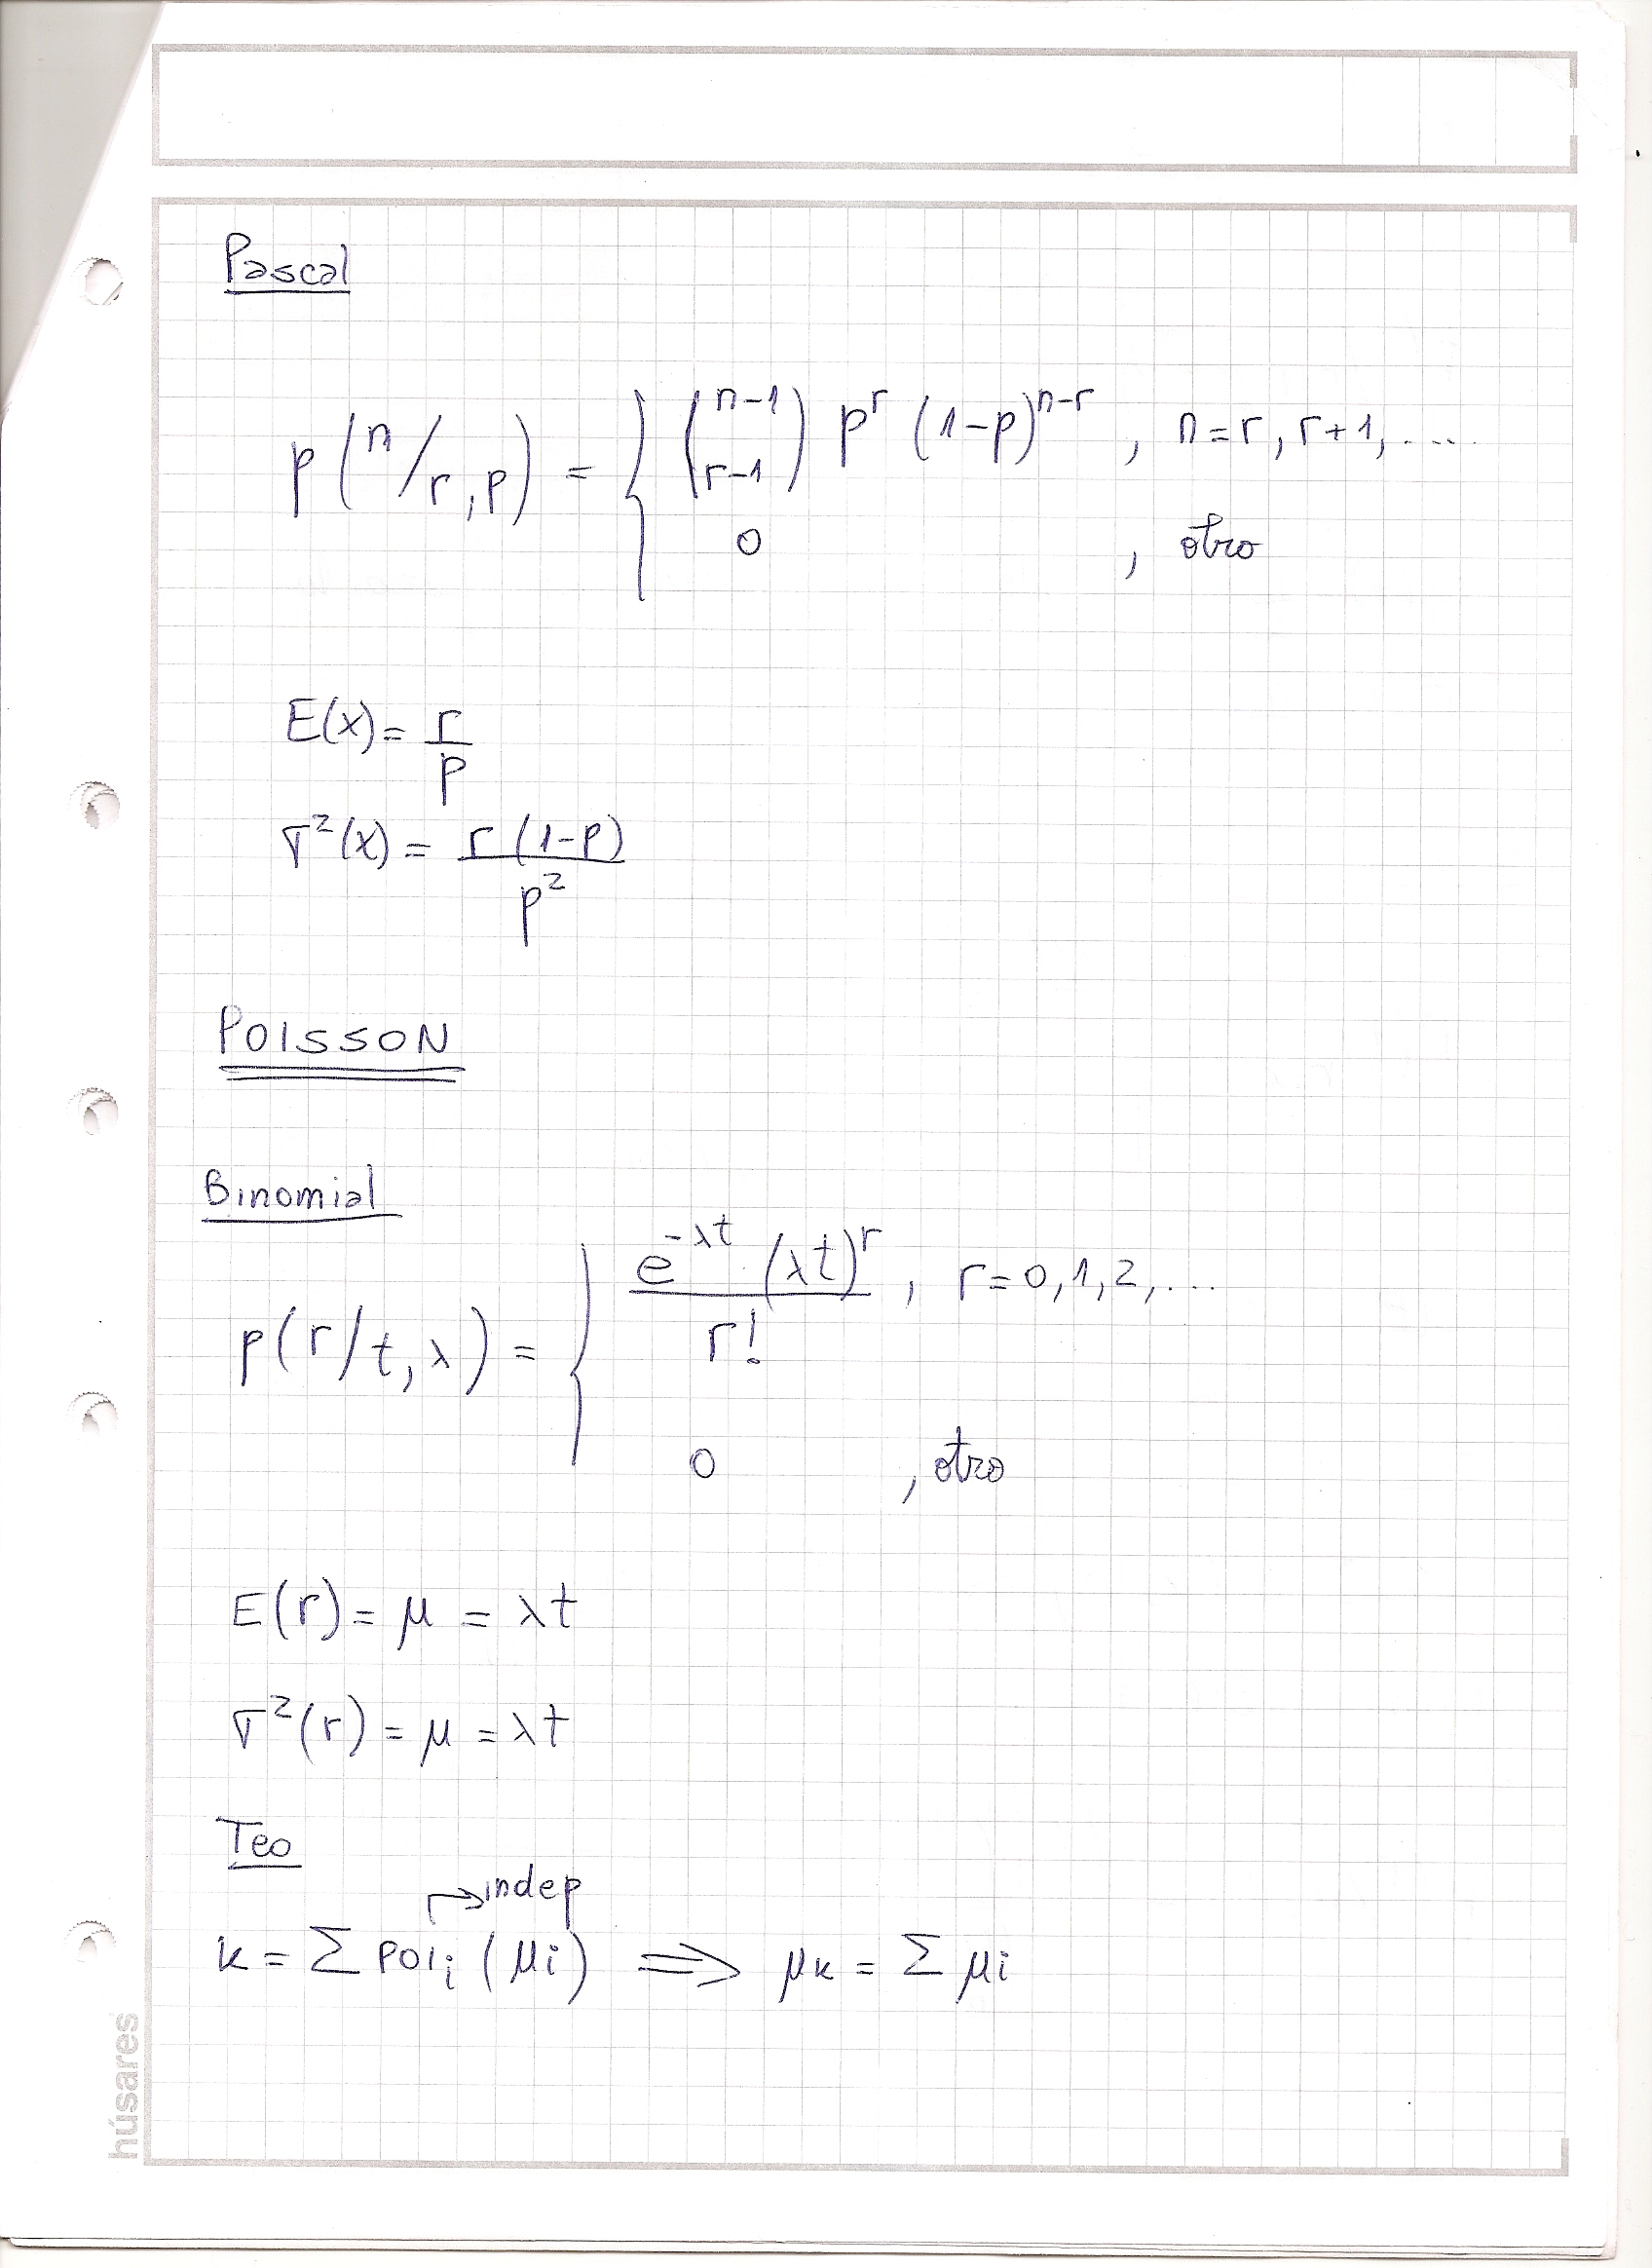 Pascal
p(n/r,p) = { (n-1 r-1) p^r (1-p)^n-r , n=r, r+1, ....
0 , otro
E(x)= r/p
σ²(x) = r(1-p)/p²
POISSON
Binomial
p(r/t,λ) = { e^-λt (λt)^r / r! , r=0,1,2,...
0 , otro
E(r)= μ = λt
σ²(r) = μ = λt
Teo
→indep
k = Σ POIi (μi) ⟹ μk = Σ μi
húsares